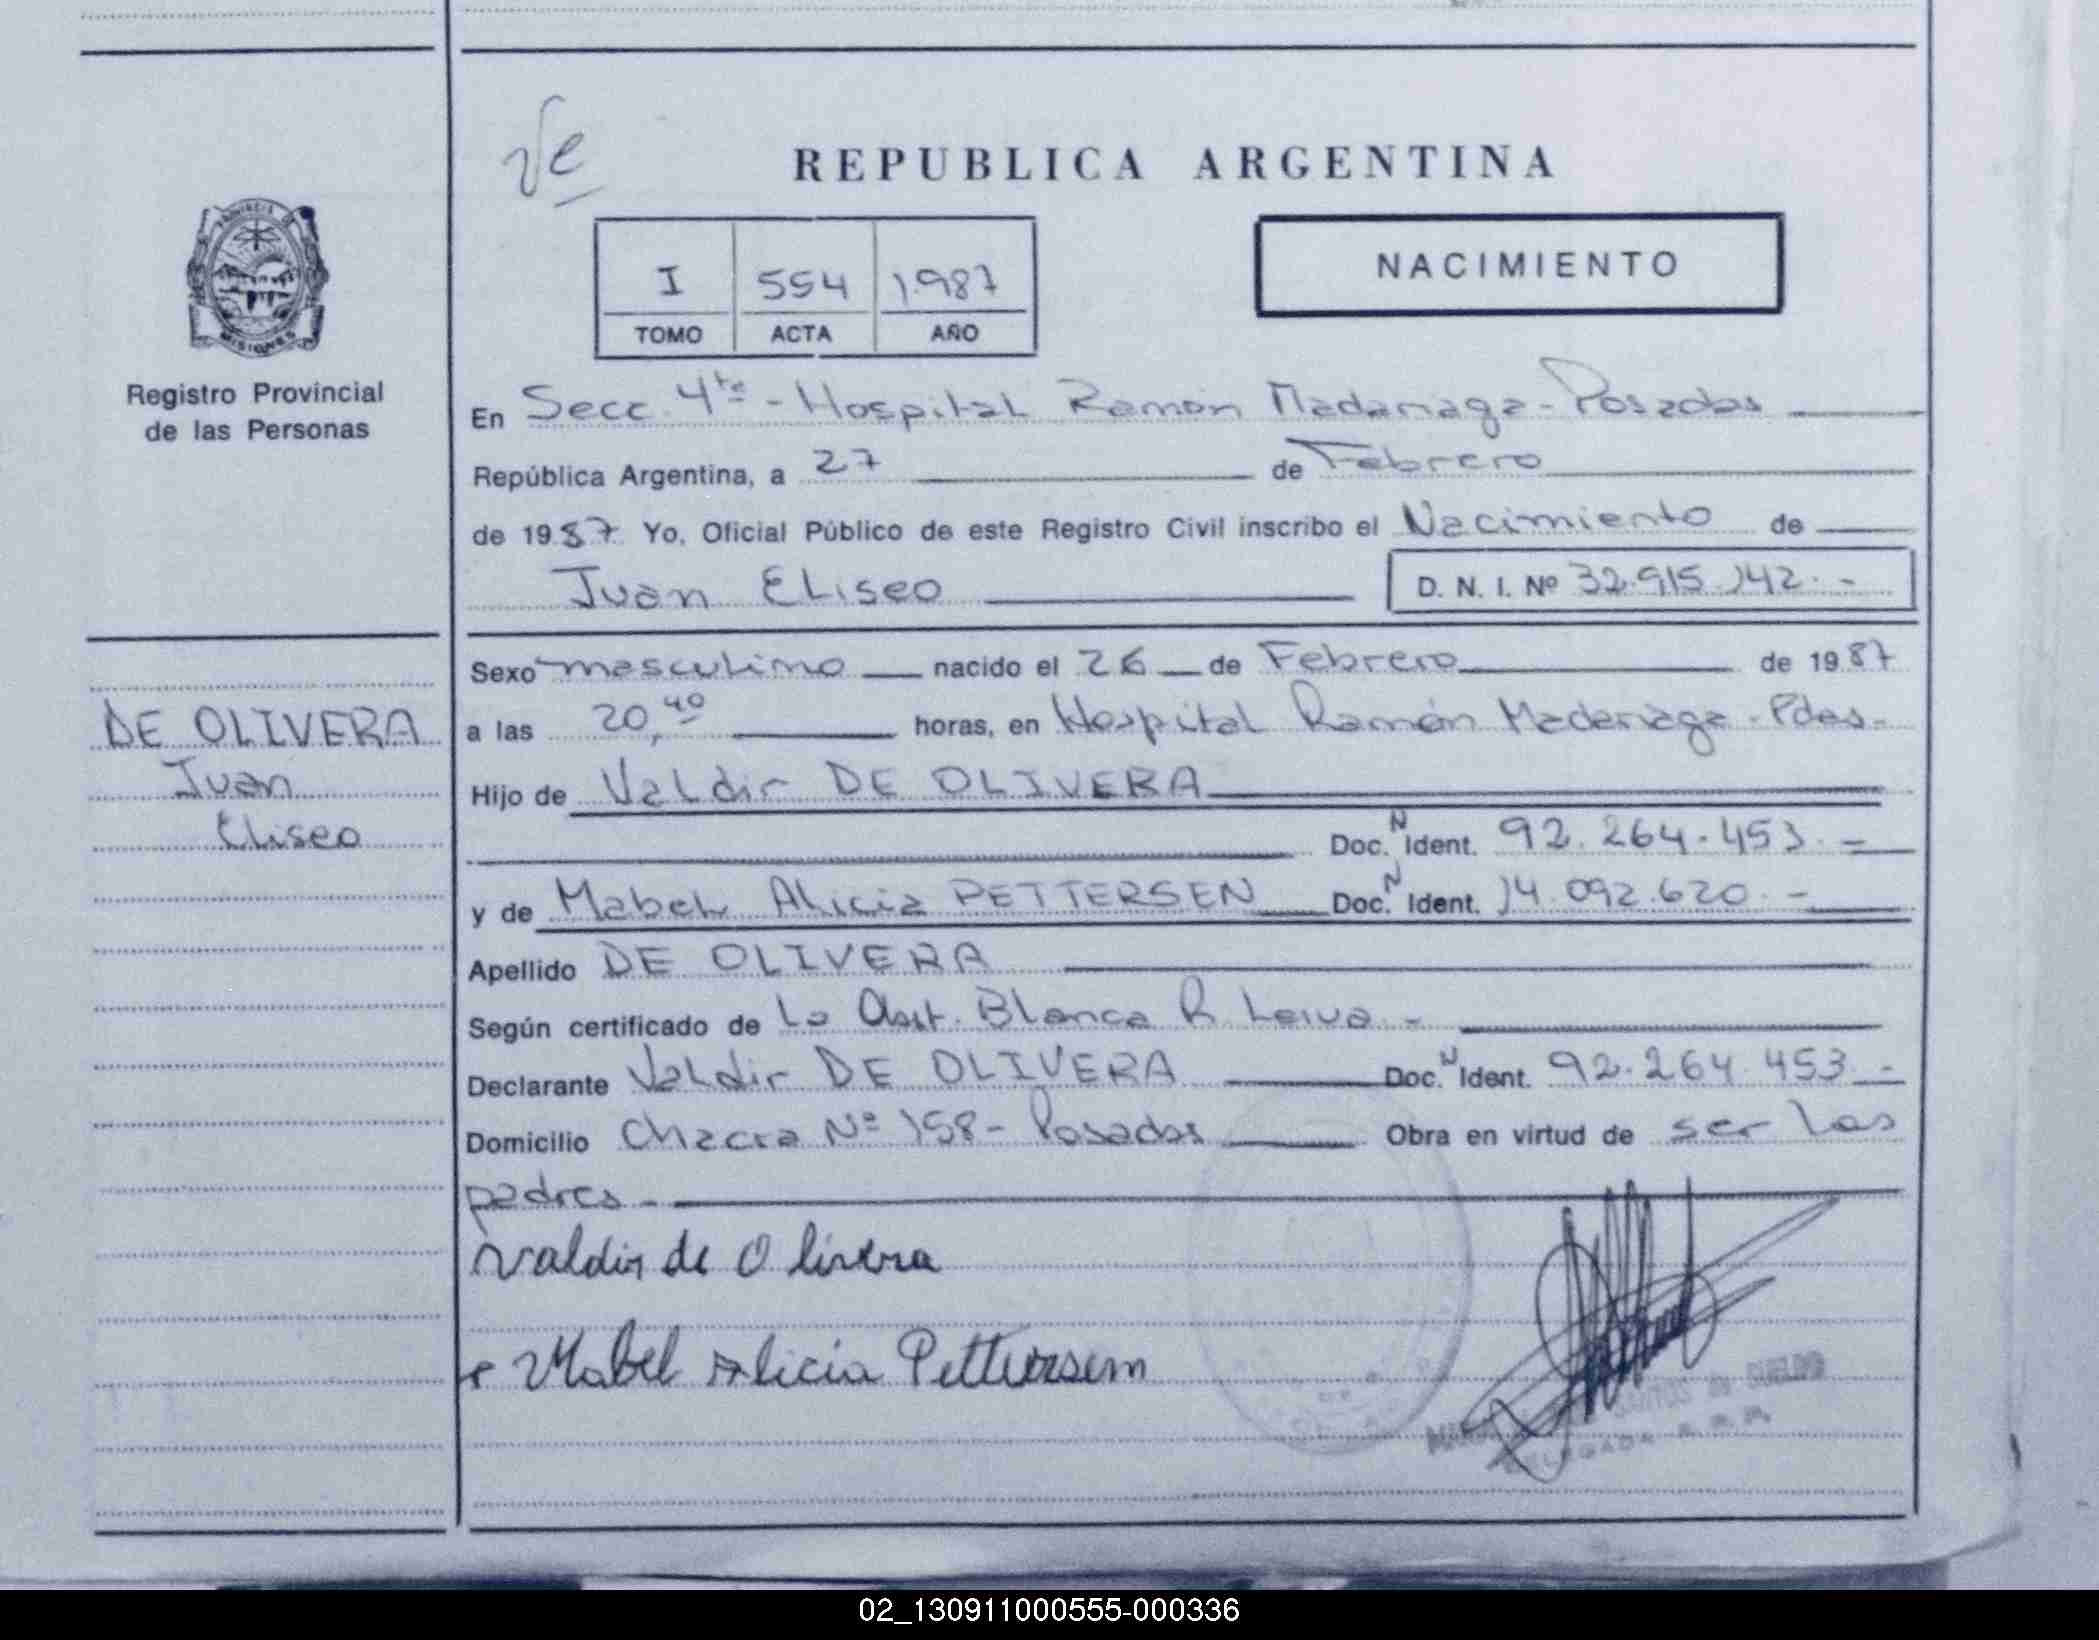 Ve
REPUBLICA ARGENTINA
PROVINCIA DE
MISIONES
Registro Provincial
de las Personas
I 554 1.987
TOMO ACTA AÑO
NACIMIENTO
En Secc. 4ta - Hospital Ramón Madariaga - Posadas
República Argentina, a 27 de Febrero
de 1987 Yo, Oficial Público de este Registro Civil inscribo el Nacimiento de
Juan Eliseo D. N. I. Nº 32.915.142.-
Sexo masculino nacido el 26 de Febrero de 1987
DE OLIVERA
Juan
Eliseo
a las 20,40 horas, en Hospital Ramón Madariaga - Pdas-
Hijo de Valdir DE OLIVERA
Doc. N Ident. 92.264.453.-
y de Mabel Alicia PETTERSEN Doc. N Ident. 14.092.620.-
Apellido DE OLIVERA
Según certificado de La Obst. Blanca R. Leiva.-
Declarante Valdir DE OLIVERA Doc. N Ident. 92.264.453.-
Domicilio Chacra Nº 158- Posadas Obra en virtud de ser los
padres.-
Valdir de Olivera
Mabel Alicia Pettersen
DELEGADA R. P. P.
02_130911000555-000336